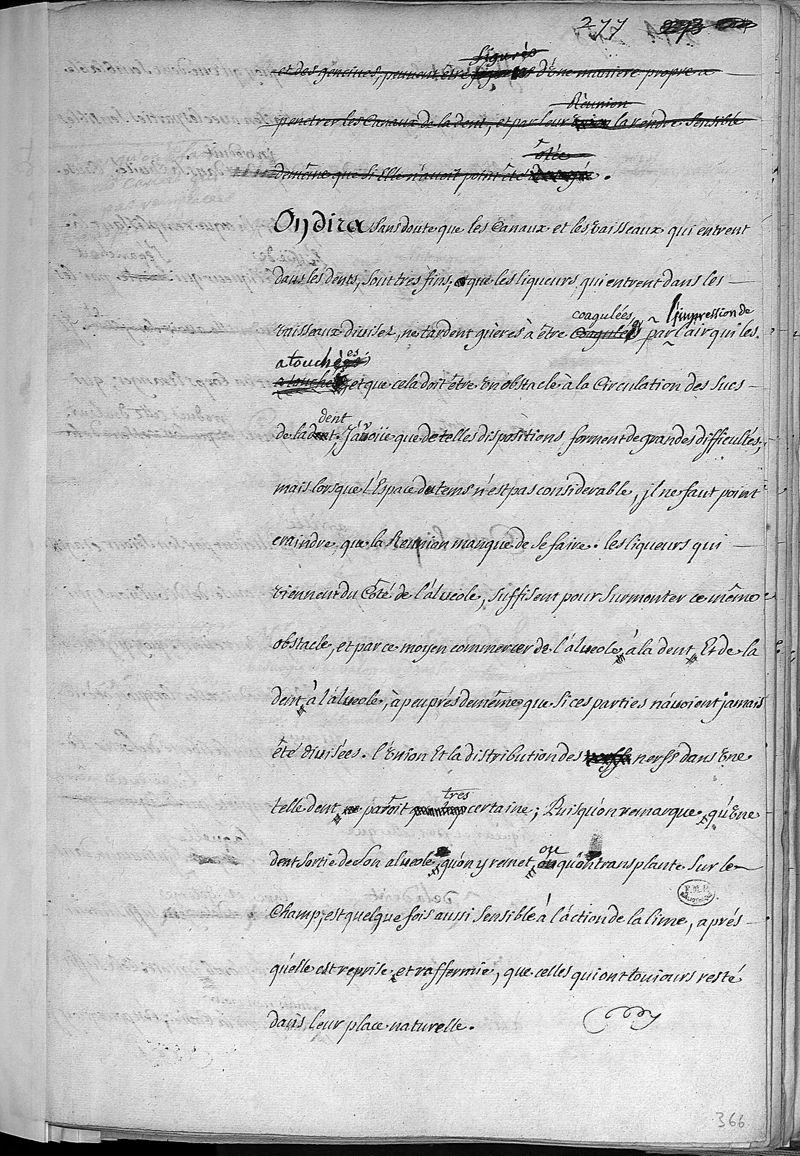 277
figurés
et des gencives, peuvent être d'Une maniere propre a
Réunion
penetrer les Canaux de la dent, et par leur la rendre Sensible
ôtée
de même que si Elle n'avoit point êté
On dira Sans doute que les Canaux et les vaisseaux qui entrent
dans les dents, Sont tres fins, que les liqueurs qui entrent dans les
coagulées l'impression de
vaisseaux divisez, ne tardent guères à être par l'air qui les
a touchées
et que cela doit être un obstacle à la Circulation des Sucs
dent
de la J'avoüe que de telles dispositions forment de grandes difficultés,
mais lorsque l'Espace de tems n'est pas considerable, il ne faut point
craindre, que la Reunion manque de se faire. les liqueurs qui
viennent du Côté de l'alveole, Suffisent pour Surmonter ce même
obstacle, et par ce moyen commercer de l'alveole, à la dent, Et de la
dent, à l'alveole, à peu prés de même que si ces parties n'avoient jamais
êté divisées. l'Union Et la distribution des nerfs dans Une
tres
telle dent, paroît certaine; Puisqu'on remarque, qu'Une
ou
dent Sortie de Son alveole, qu'on y remet, qu'on transplante Sur le
Champ, est quelque fois aussi Sensible à l'action de la lime, aprés
qu'elle est reprise, et raffermie, que celles qui ont toujours resté
dans leur place naturelle.
366